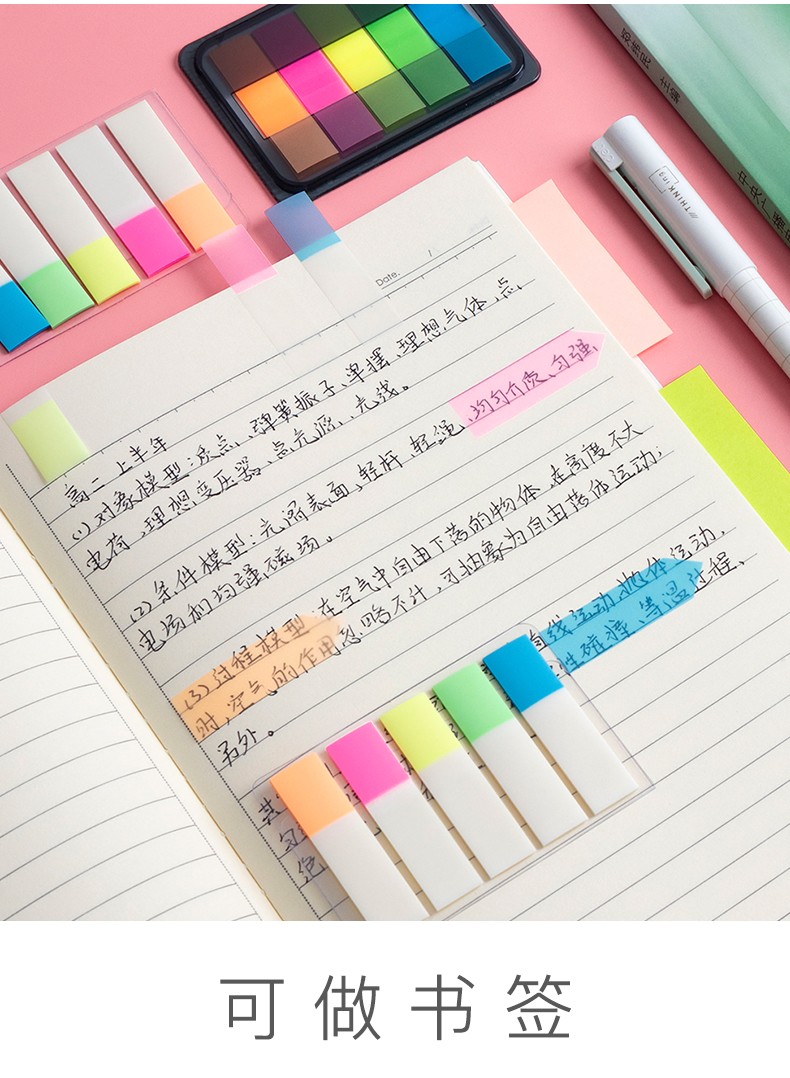 主编
THINK
ing
Date. /
高二上半年
(1) 对象模型：质点、弹簧振子、单摆、理想气体、点
电荷、理想变压器、点光源、光线。
(2) 条件模型：光滑表面、轻杆、轻绳、均匀介质、匀强
电场和匀强磁场。
(3) 过程模型：在空气中自由下落的物体，在高度不大
时，空气的作用忽略不计，可抽象为自由落体运动；
另外。直线运动、抛体运动、
性碰撞、等温过程、
其
匀
绝
可做书签